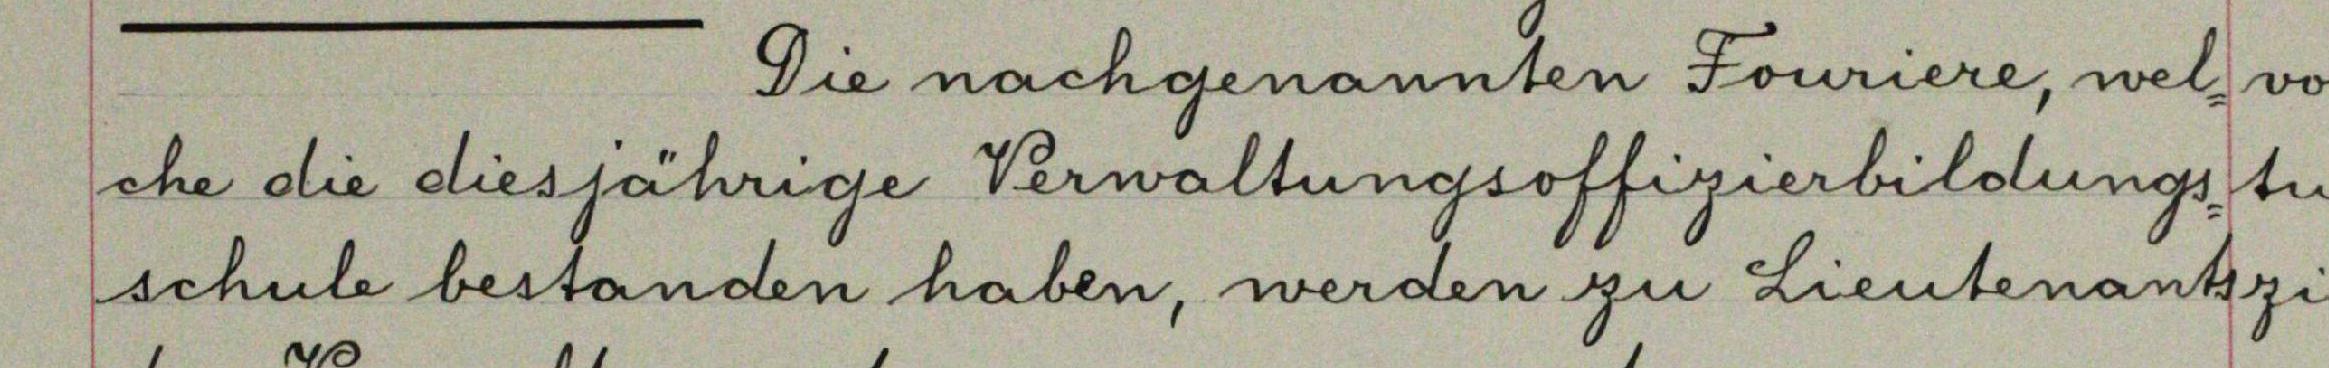 Die nachgenannten Fouriere, wel=
che die diesjährige Verwaltungsoffizierbildungs=
schule bestanden haben, werden zu Lieutenants